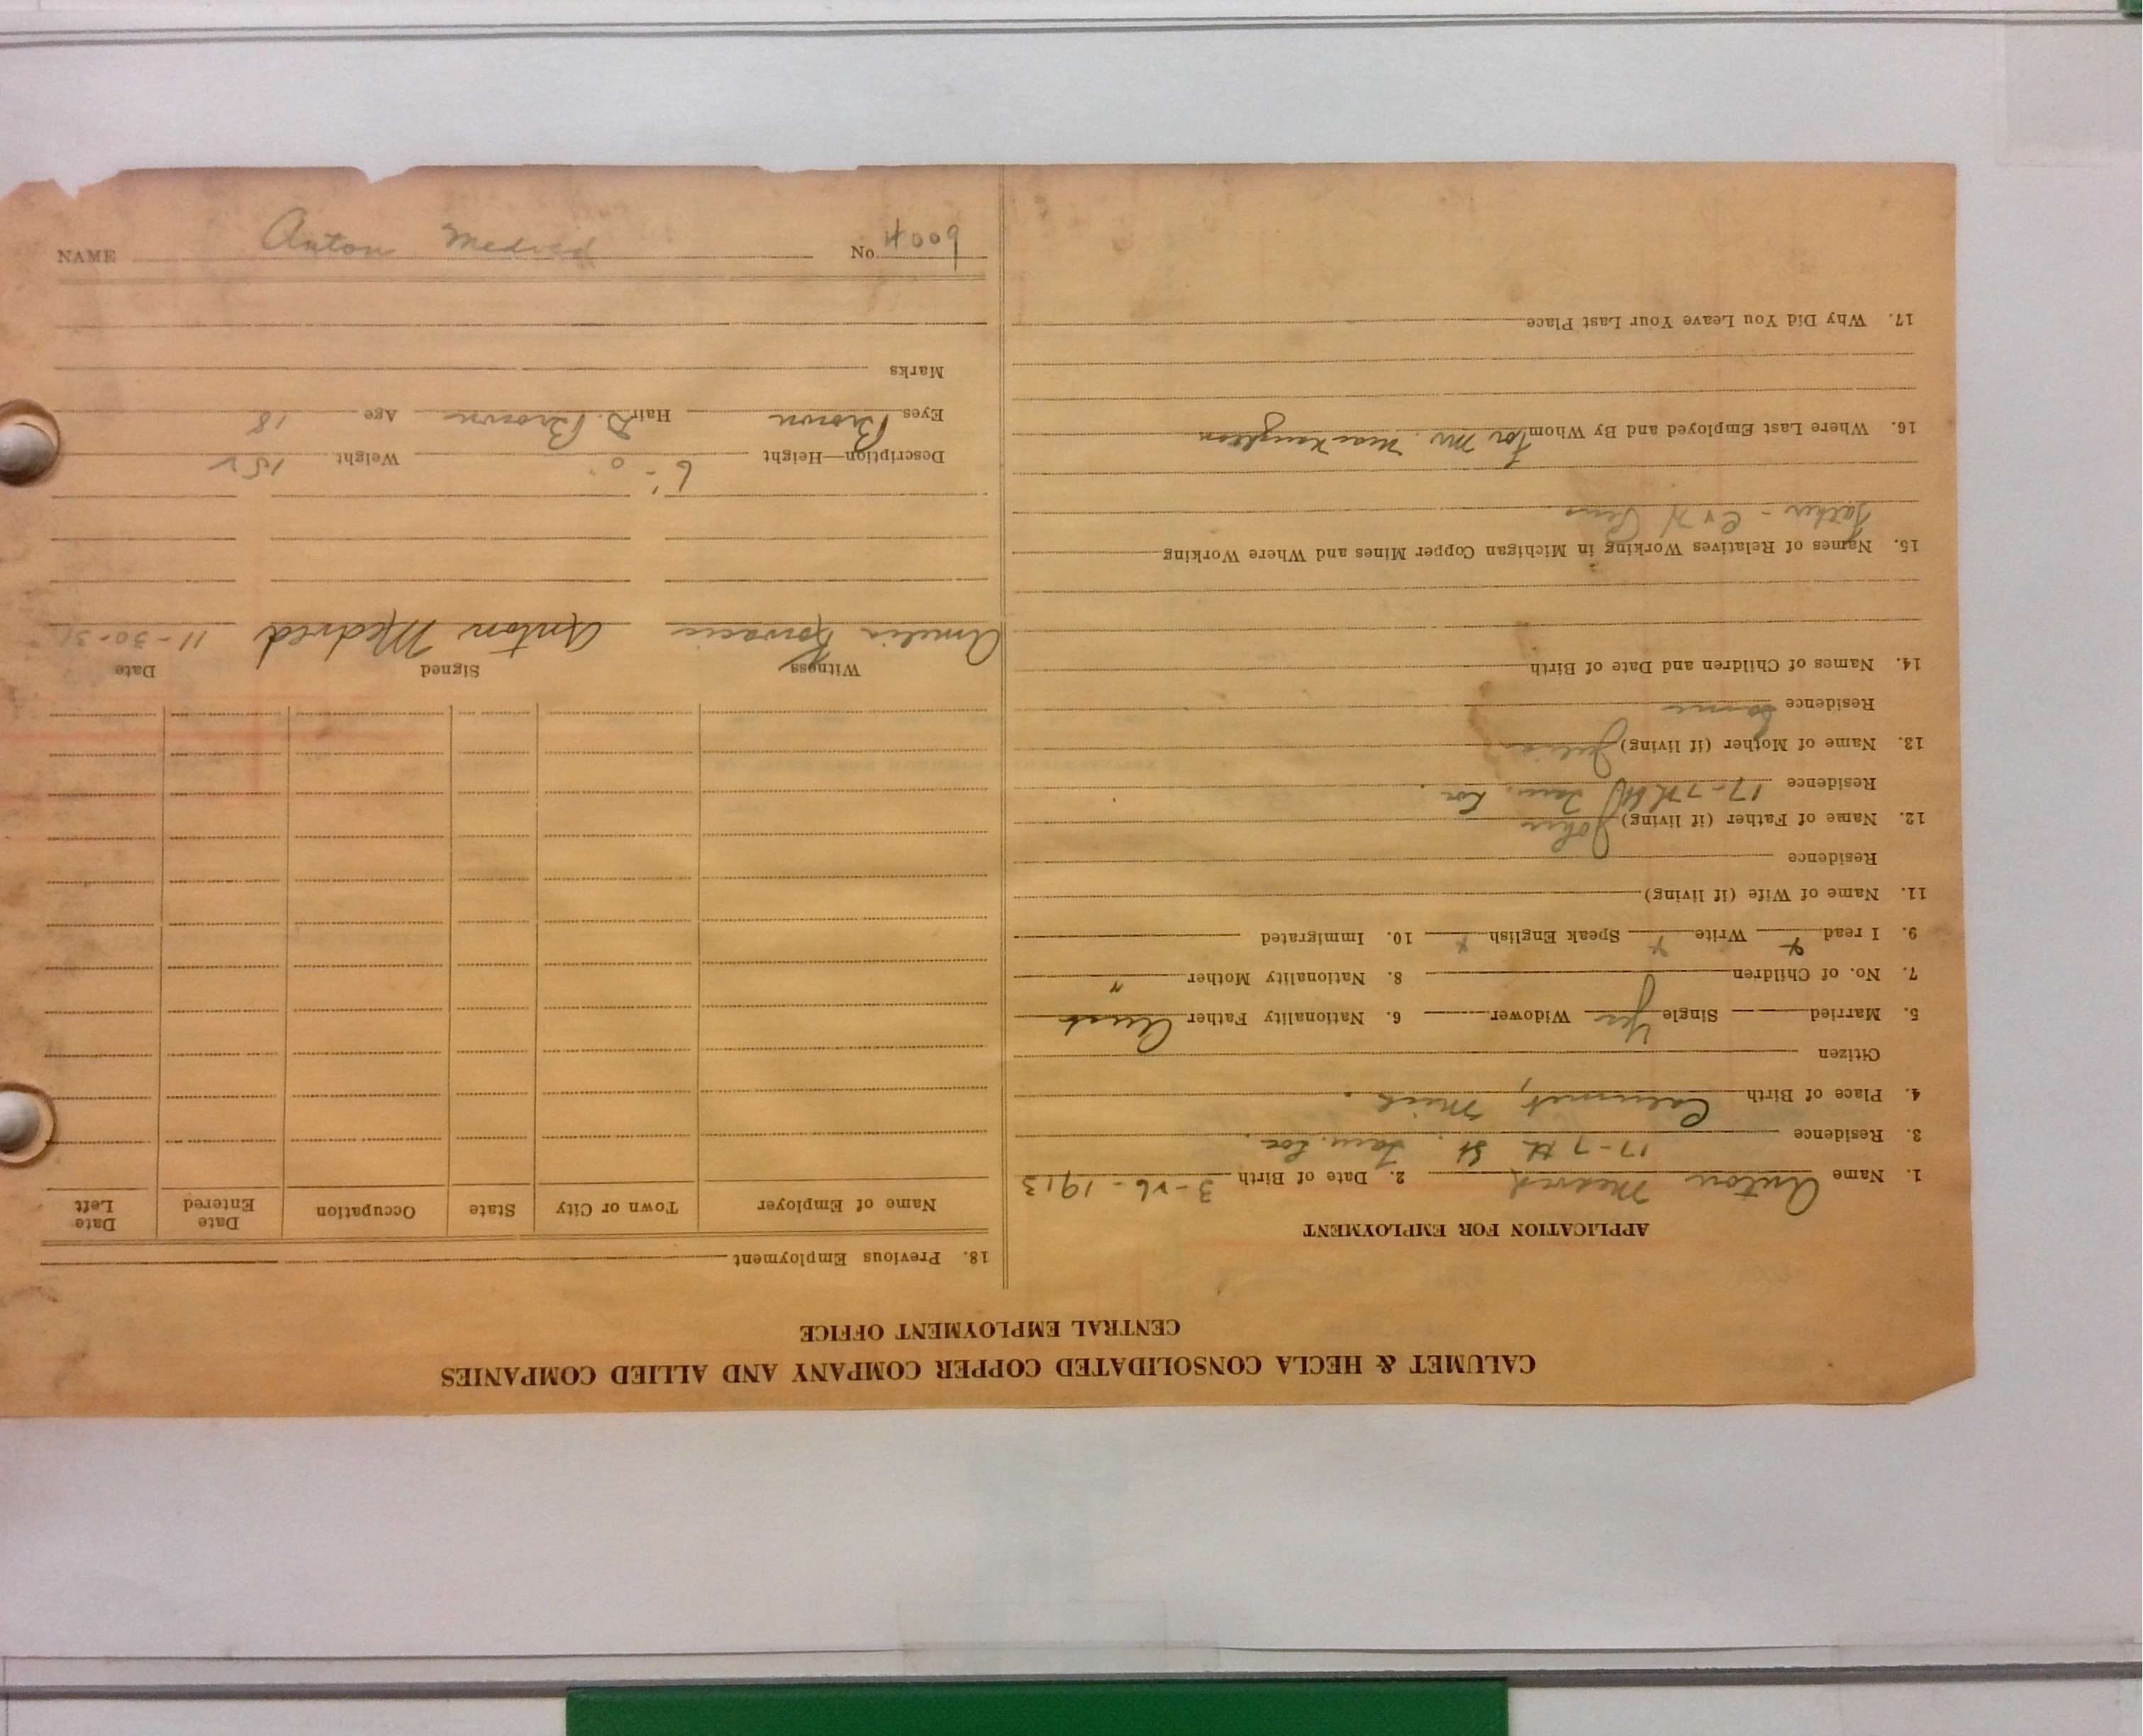 CALUMET & HECLA CONSOLIDATED COPPER COMPANY AND ALLIED COMPANIES
CENTRAL EMPLOYMENT OFFICE
APPLICATION FOR EMPLOYMENT
1. Name Anton Medved 2. Date of Birth 3-26-1913
3. Residence 17-7th St. Tam. Loc.
4. Place of Birth Calumet, Mich.
Citizen
5. Married Single Yes Widower 6. Nationality Father Aust
7. No. of Children 8. Nationality Mother "
9. I read x Write x Speak English x 10. Immigrated
11. Name of Wife (if living)
Residence
12. Name of Father (if living) John
Residence 17-7th St Tam. Loc.
13. Name of Mother (if living) Julia
Residence Same
14. Names of Children and Date of Birth
15. Names of Relatives Working in Michigan Copper Mines and Where Working
Father - C & H
16. Where Last Employed and By Whom For Mr. MacNaughton
17. Why Did You Leave Your Last Place
18. Previous Employment
Name of Employer Town or City State Occupation Date Entered Date Left
Witness Signed Date
Amelia Anton Medved 11-30-31
Description—Height 6'-0" Weight 152
Eyes Brown Hair D. Brown Age 18
Marks
NAME Anton Medved No. 4009